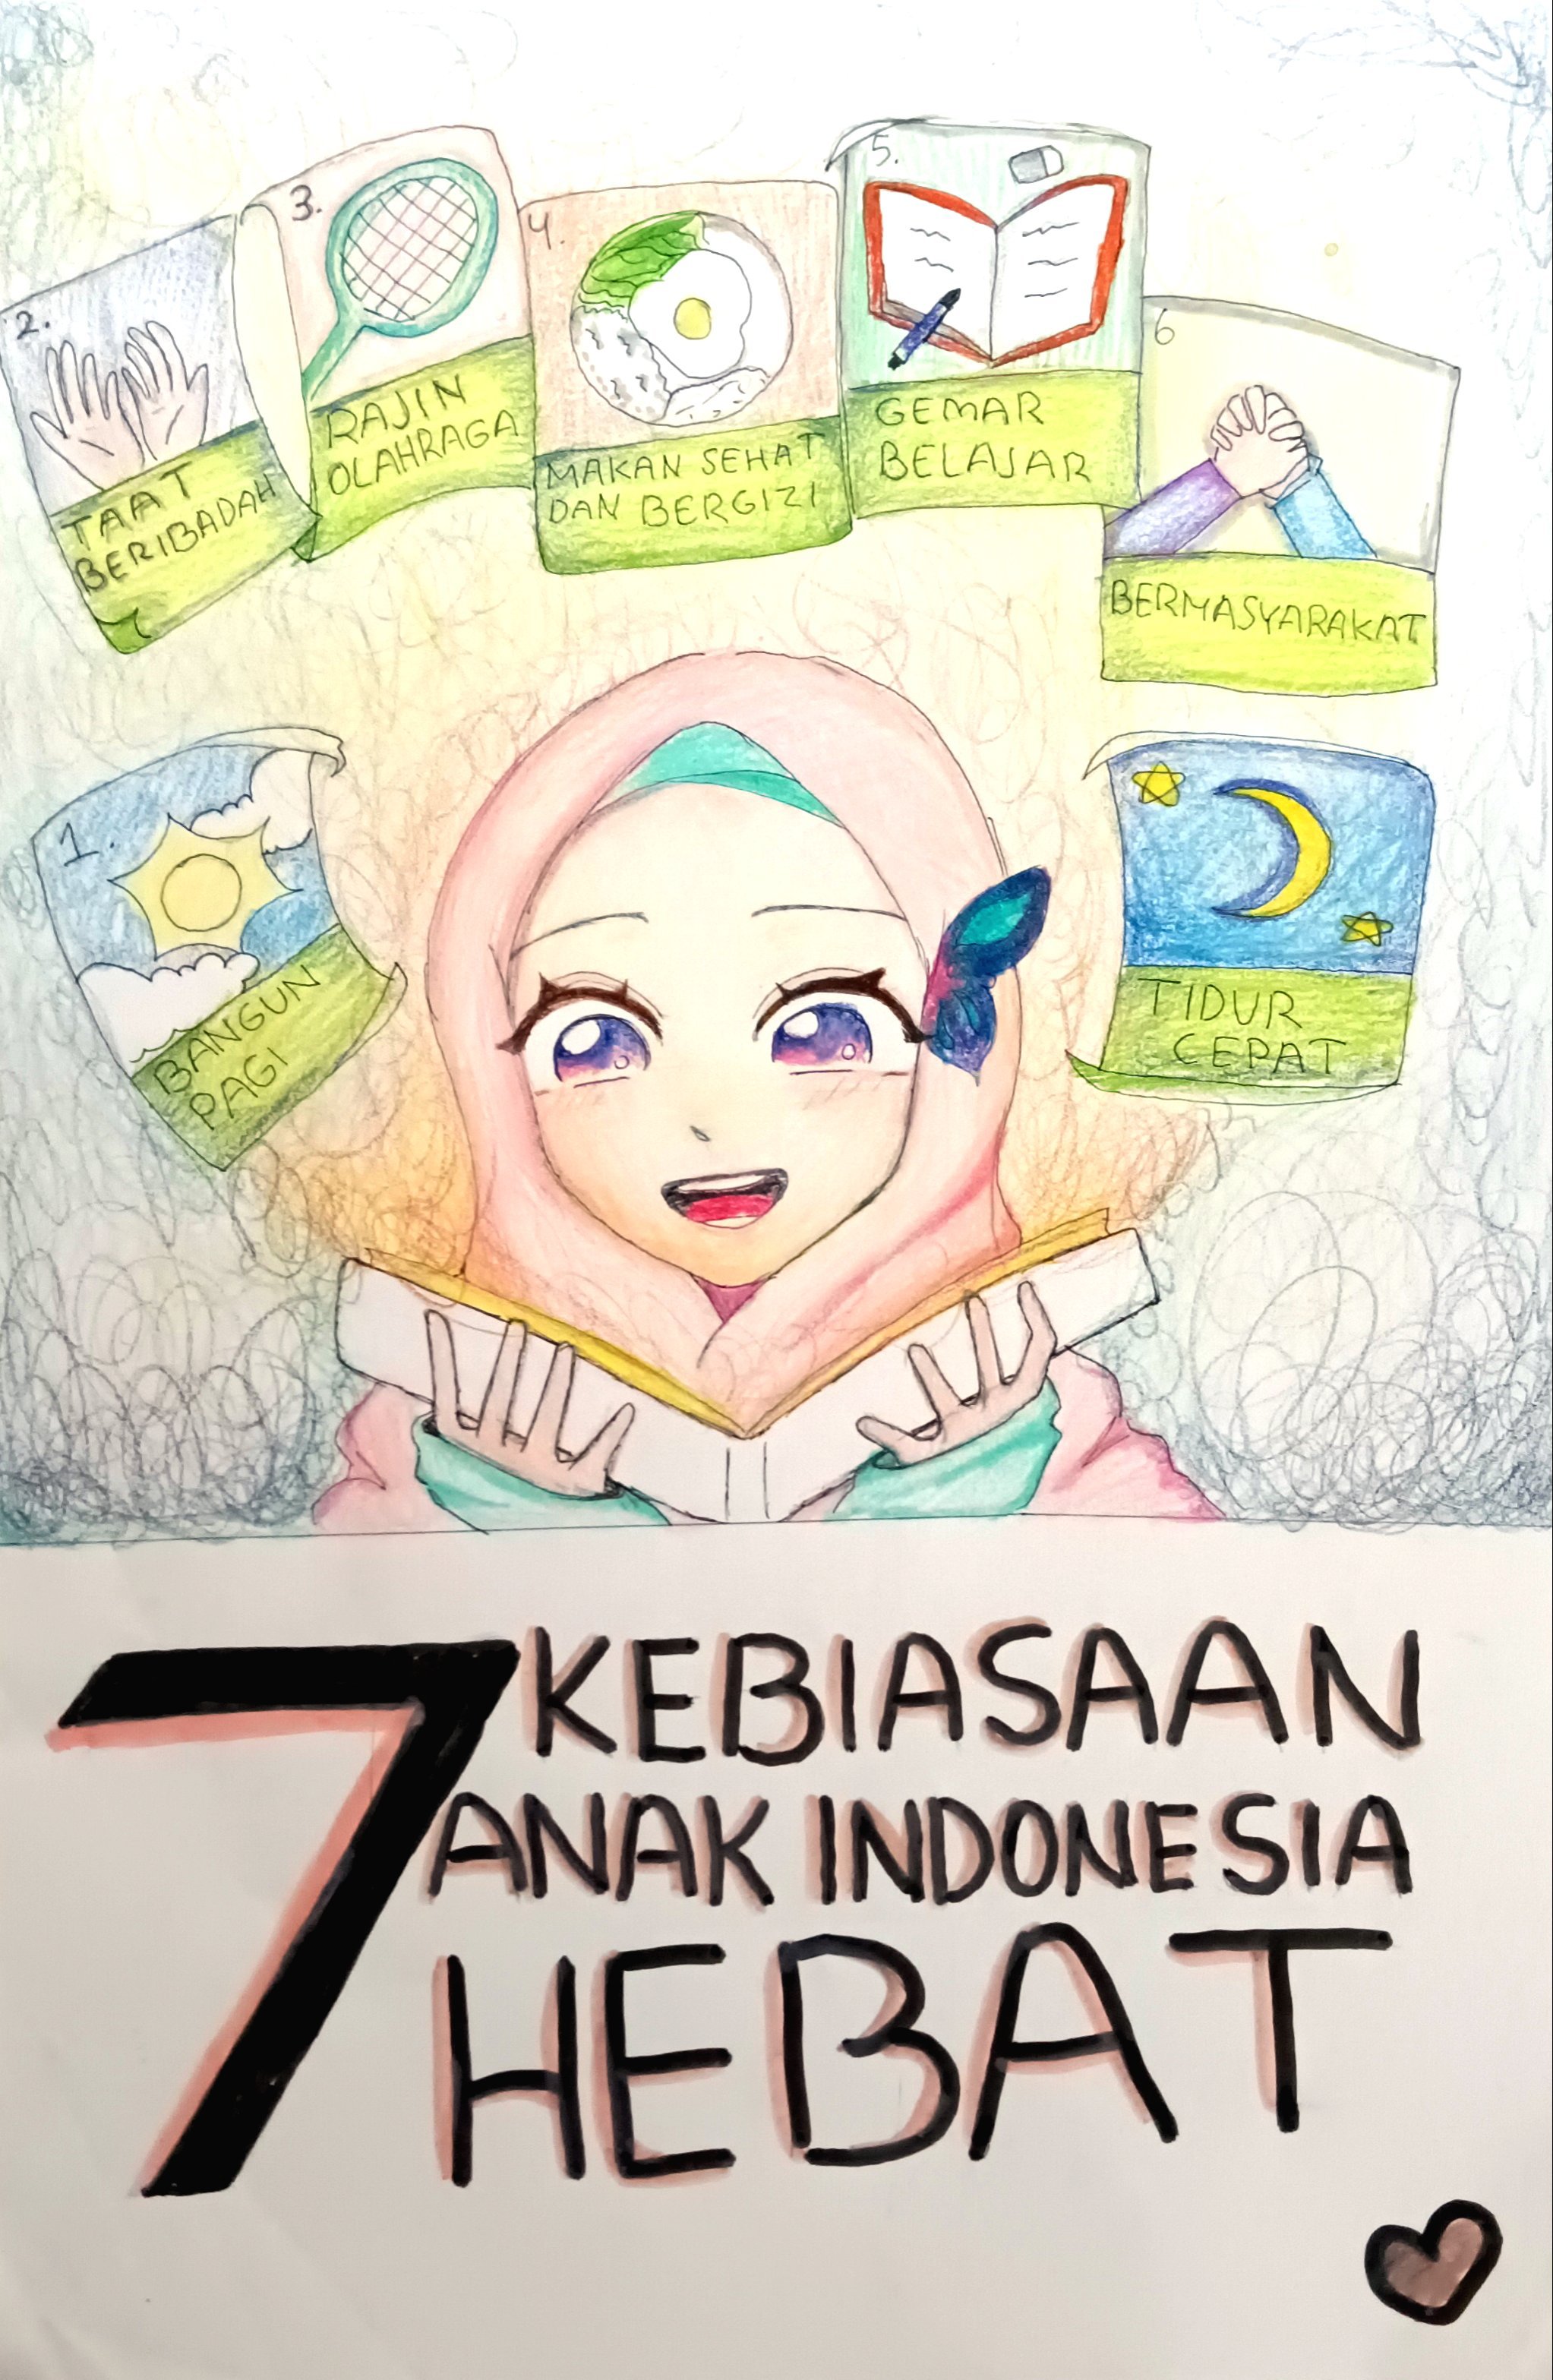 1.
BANGUN
PAGI
2.
TAAT
BERIBADAH
3.
RAJIN
OLAHRAGA
4.
MAKAN SEHAT
DAN BERGIZI
5.
GEMAR
BELAJAR
6
BERMASYARAKAT
TIDUR
CEPAT
7 KEBIASAAN
ANAK INDONESIA
HEBAT